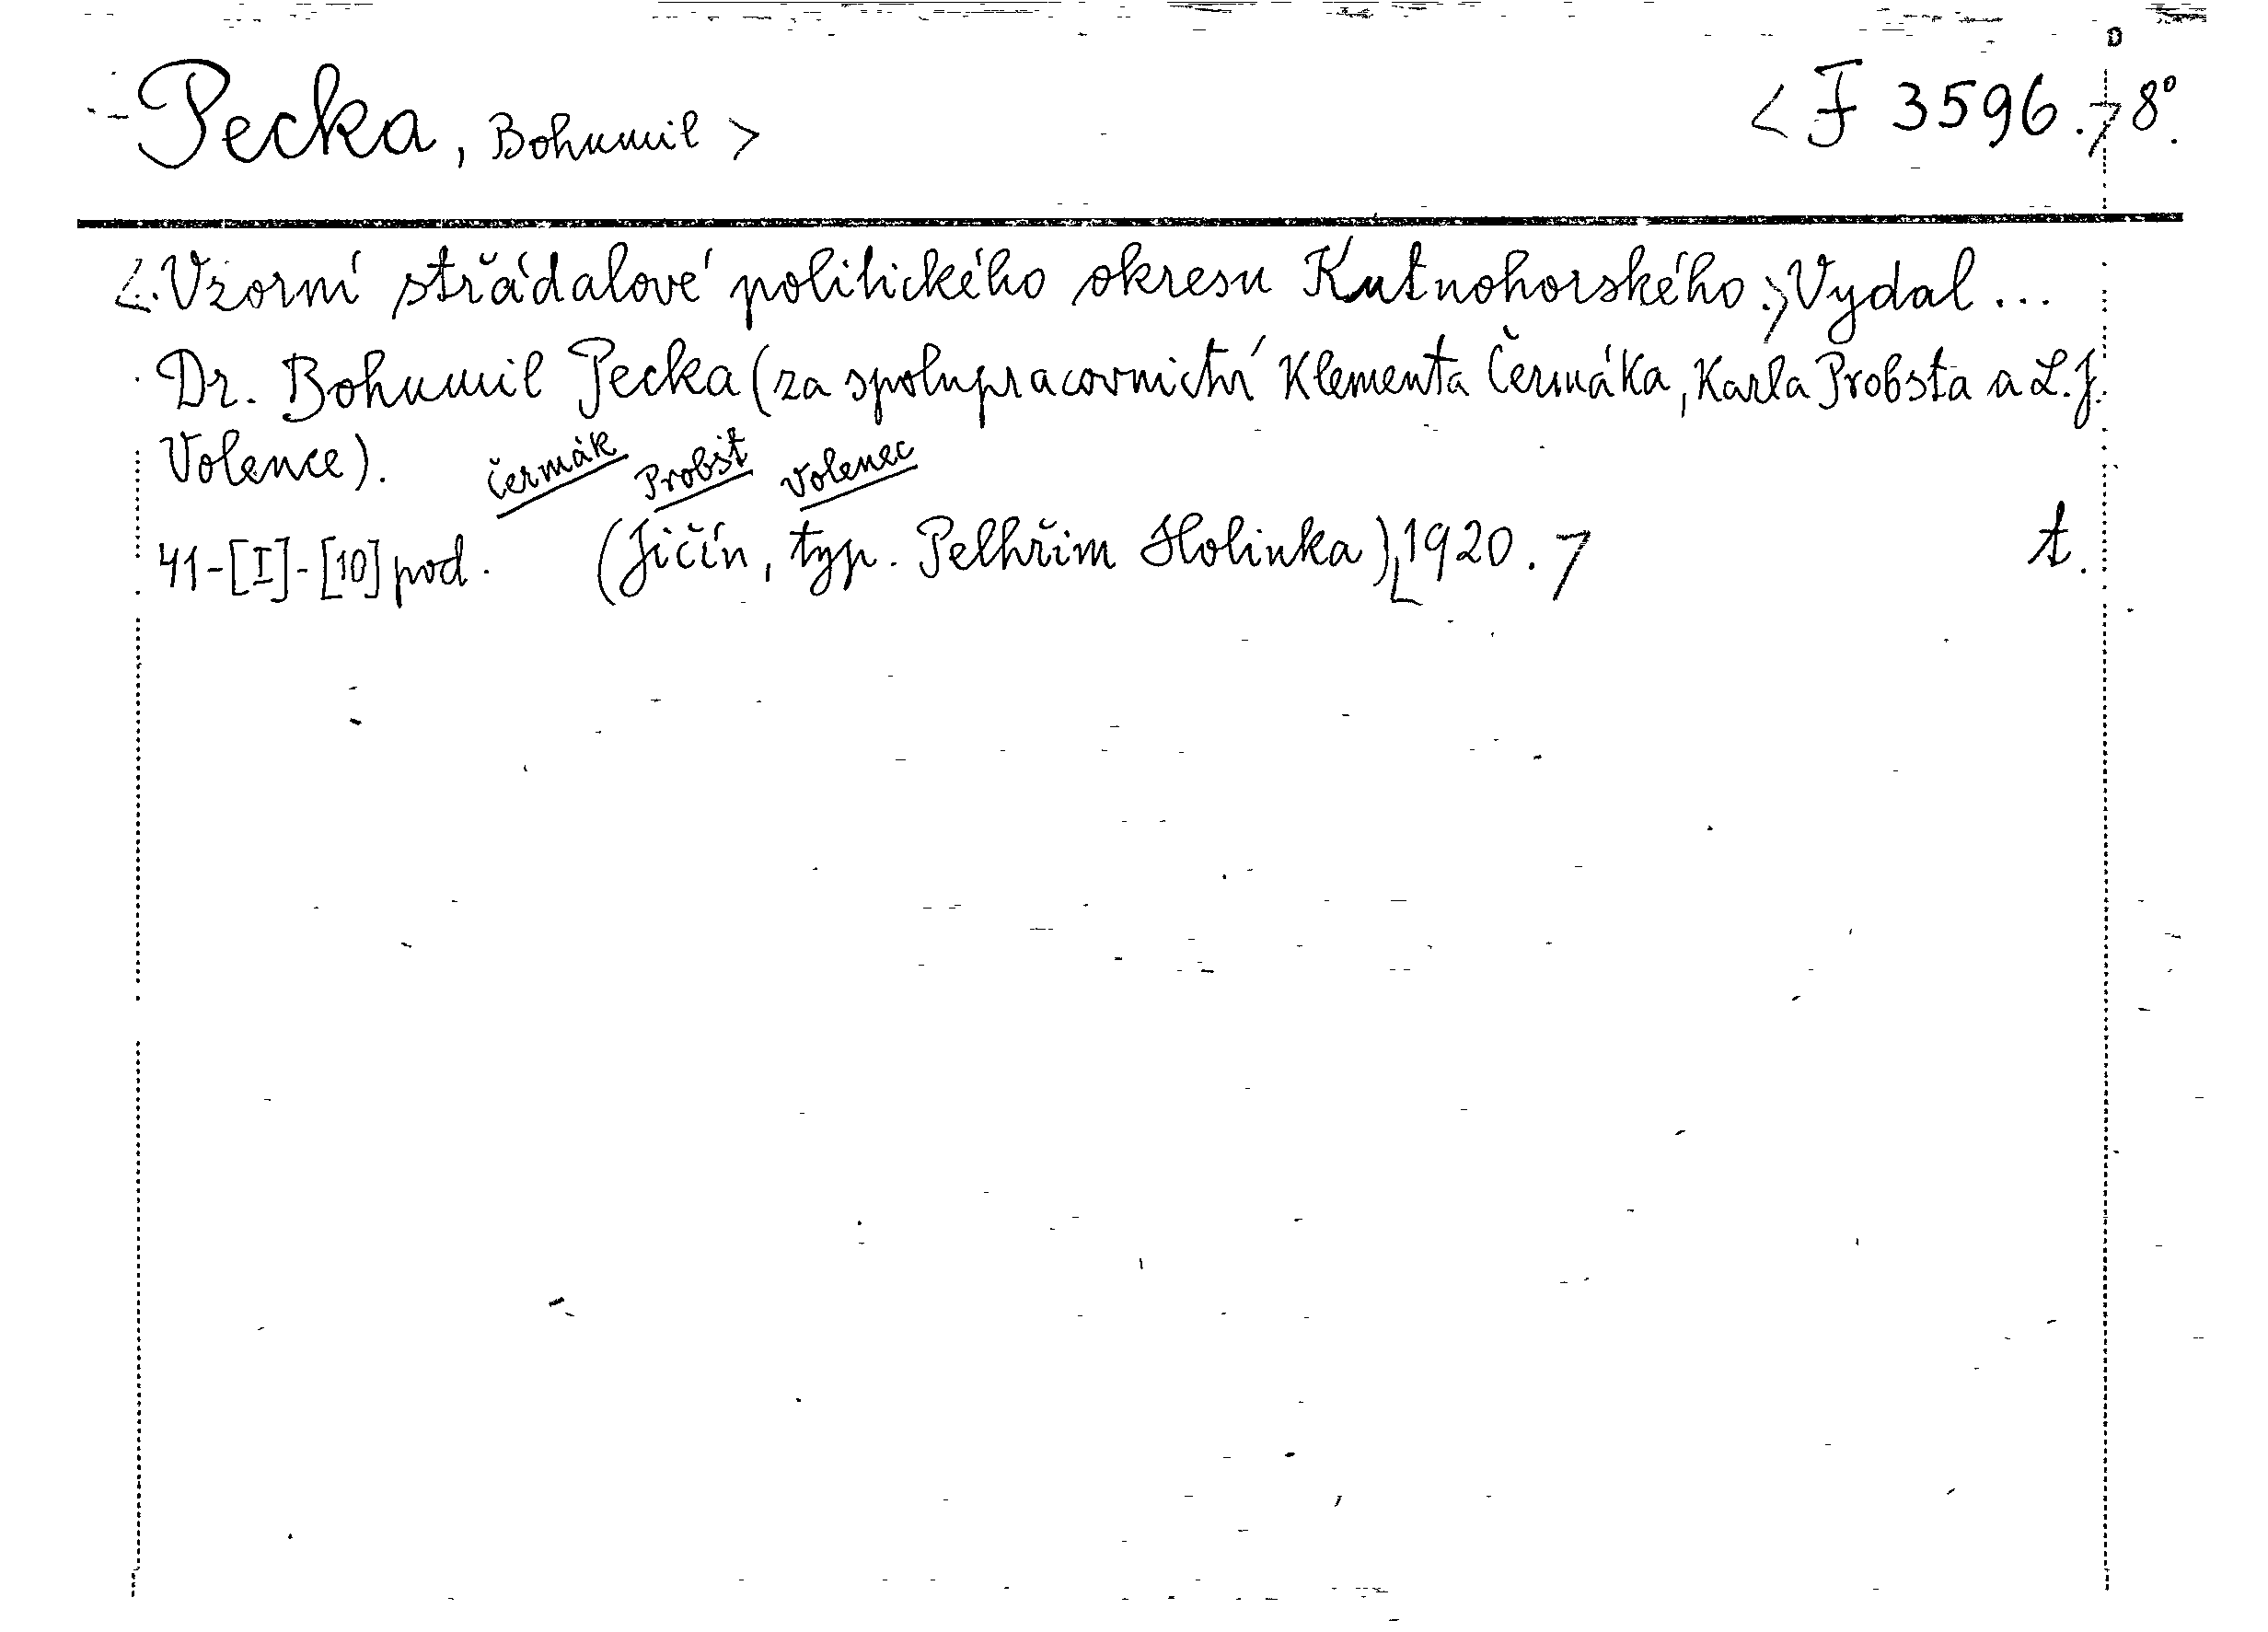 Pecka, Bohumil > < F 3596. 7 8°.
<. Vzorní střádalové politického okresu Kutnohorského. > Vydal ...
Dr. Bohumil Pecka (za spolupracovnictví Klementa Čermáka, Karla Probsta a L. J.
Volence). Čermák Probst Volenec
41-[I]-[10] pod. (Jičín, typ. Pelhřim Holinka) 1920. 7 t.